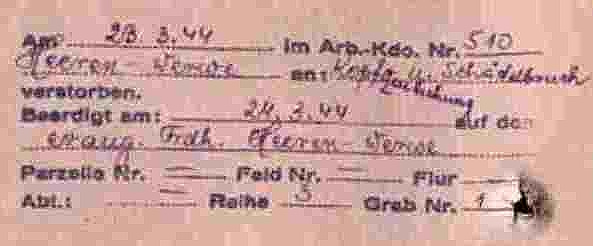 Am 23.3.44 im Arb.-Kdo. Nr. 510
Heeren-Werve an: Kopfq. u. Schädelbruch
verstorben.
Beerdigt am: 24.3.44 auf den
evang. Frdh. Heeren-Werve
Parzelle Nr. — Feld Nr. — Flur —
Abt.: — Reihe 3 Grab Nr. 1